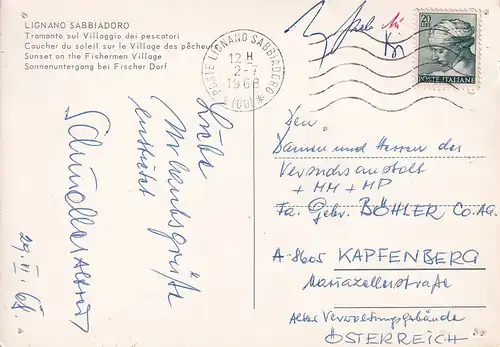 LIGNANO SABBIADORO
Tramonto sul Villaggio dei pescatori
Coucher du soleil sur le Village des pêcheurs
Sunset on the Fishermen Village
Sonnenuntergang bei Fischer Dorf
POSTE LIGNANO SABBIADORO
12 H
2-7
1968
* (UD) *
20
POSTE ITALIANE
Liebe
Urlaubsgrüße
entsendet
29. VI. 68
Den
Damen und Herren der
Versuchsanstalt
+ MM + MP
Fa. Gebr. BÖHLER Co. AG.
A-8605 KAPFENBERG
Mariazellerstraße
Altes Verwaltungsgebäude
ÖSTERREICH